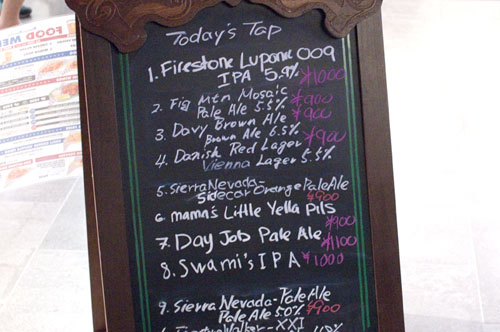 FOOD MEN
Today's Tap
1. Firestone Luponic 009
IPA 5.9% ¥1000
2. Fig Mtn Mosaic
Pale Ale 5.5% ¥900
3. Davy Brown Ale
Brown Ale 6.5% ¥900
4. Danish Red Lager ¥900
Vienna Lager 5.5%
5. Sierra Nevada-
Sidecar Orange Pale Ale
¥900
6. mama's Little Yella Pils
¥900
7. Day Job Pale Ale
¥1100
8. Swami's IPA ¥1000
9. Sierra Nevada-Pale Ale
Pale Ale 5.0% ¥900
Walker-XXI